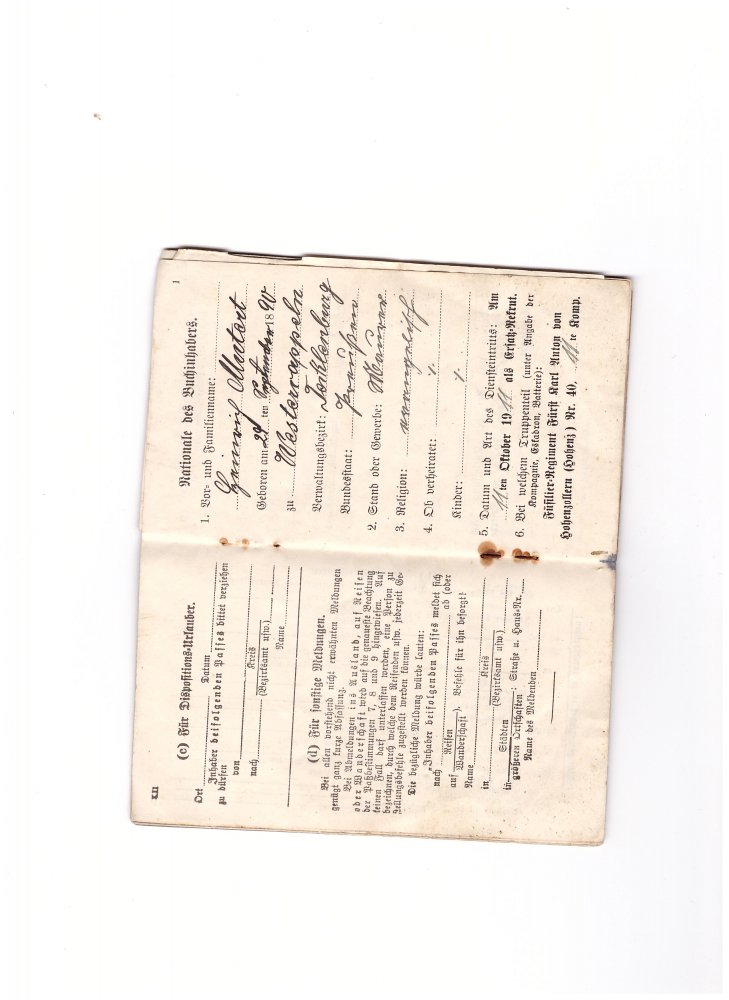 XII
(c) Für Dispositions-Urlauber.
Ort Datum
Inhaber beifolgenden Passes bittet verziehen
zu dürfen
von Kreis
nach (Bezirksamt usw.)
Name
(d) Für sonstige Meldungen.
Bei allen vorstehend nicht erwähnten Meldungen
genügt ganz kurze Abfassung.
Bei Abmeldungen ins Ausland, auf Reisen
oder Wanderschaft wird auf die genaueste Beachtung
der Paßbestimmungen 7, 8 und 9 hingewiesen. Auf
keinen Fall darf unterlassen werden, eine Person zu
bezeichnen, durch welche dem Reisenden usw. jederzeit Ge-
stellungsbefehle zugestellt werden können.
Die bezügliche Meldung würde lauten:
„Inhaber beifolgenden Passes meldet sich
nach Reisen ab (oder
auf Wanderschaft). Befehle für ihn besorgt:
Name
in Kreis
(Bezirksamt usw.)
in Städten
größeren Ortschaften: Straße u. Haus-Nr.
Name des Meldenden
1
Nationale des Buchinhabers.
1. Vor- und Familienname:
Heinrich
Geboren am 29 ten September 1890
zu Westerkappeln
Verwaltungsbezirk: Tecklenburg
Bundesstaat: Preußen
2. Stand oder Gewerbe: Maurer
3. Religion: evangelisch
4. Ob verheiratet: ./.
Kinder: ./.
5. Datum und Art des Diensteintritts: Am
11 ten Oktober 1911 als Ersatz-Rekrut.
6. Bei welchem Truppenteil (unter Angabe der
Kompagnie, Eskadron, Batterie):
Füsilier-Regiment Fürst Karl Anton von
Hohenzollern (Hohenz) Nr. 40, 11 te Komp.